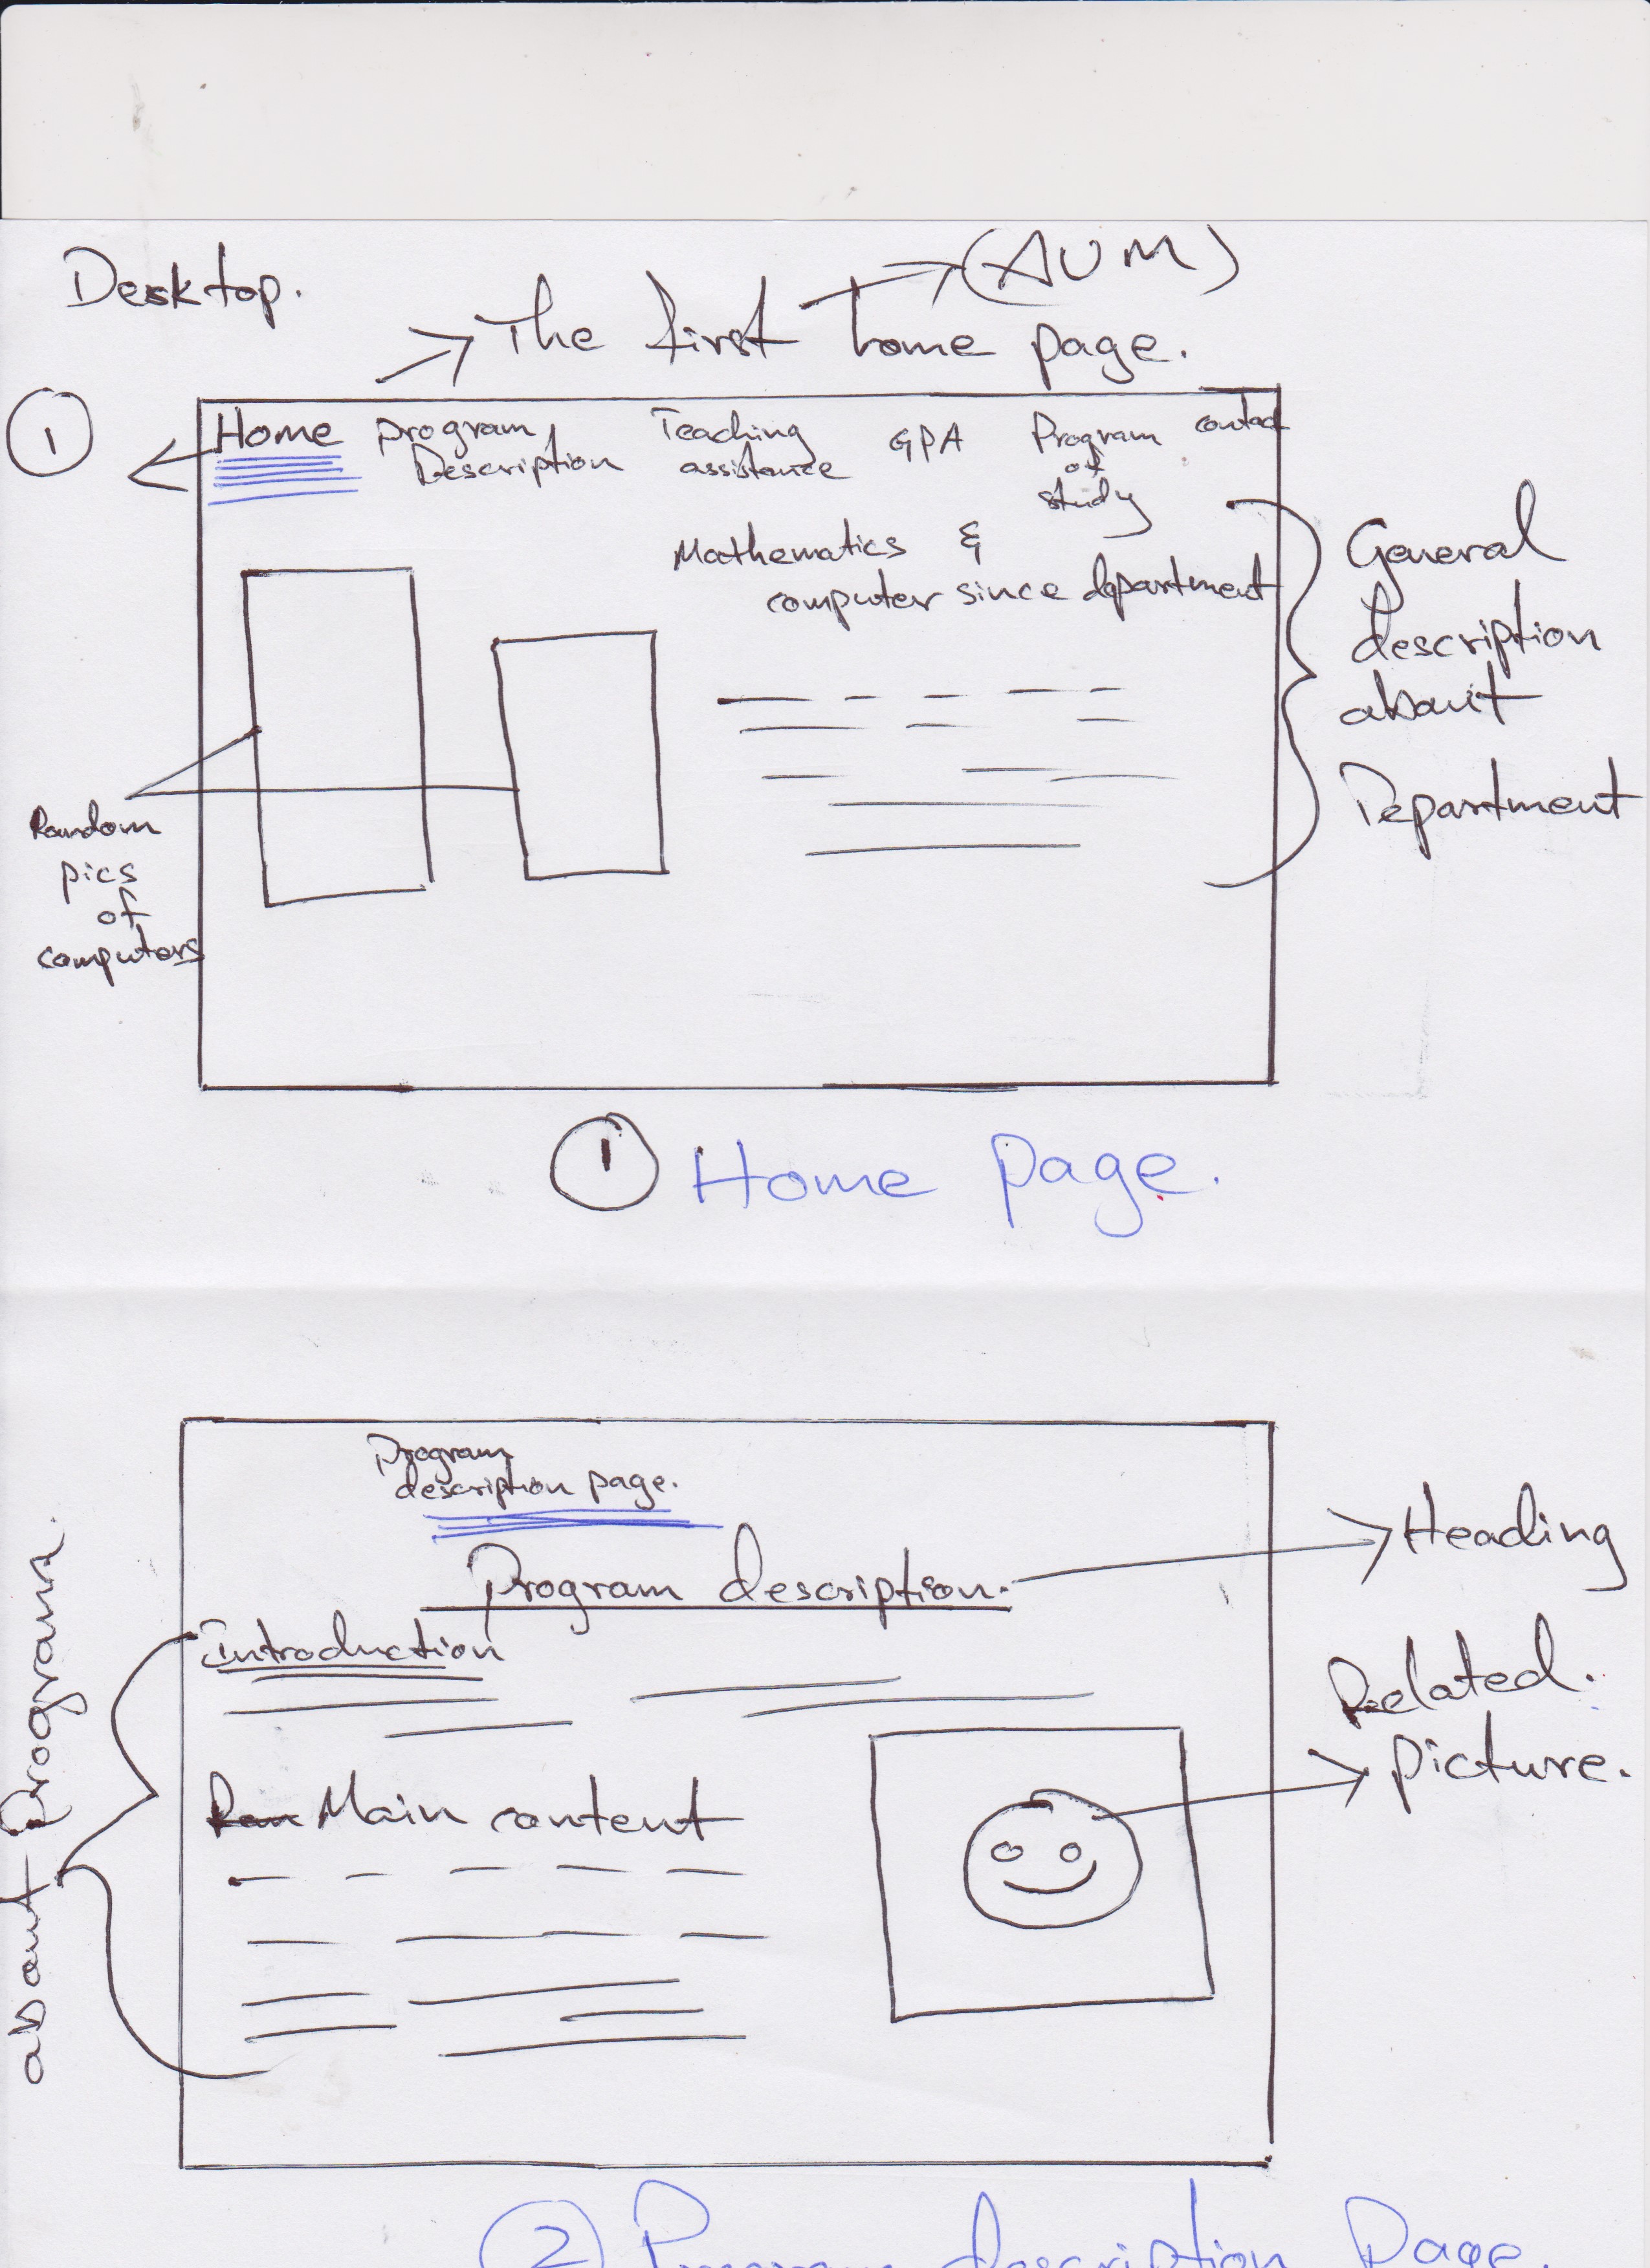 Desktop.
(AUM)
The first home page.
1
Home program Description Teaching assistance GPA Program of study contact
Mathematics &
computer since department
General
description
about
Department
Random
pics
of
computers
1 Home page.
Program
description page.
Program description.
Heading
Introduction
Related.
picture.
Main content
about Program.
2 Program description Page.